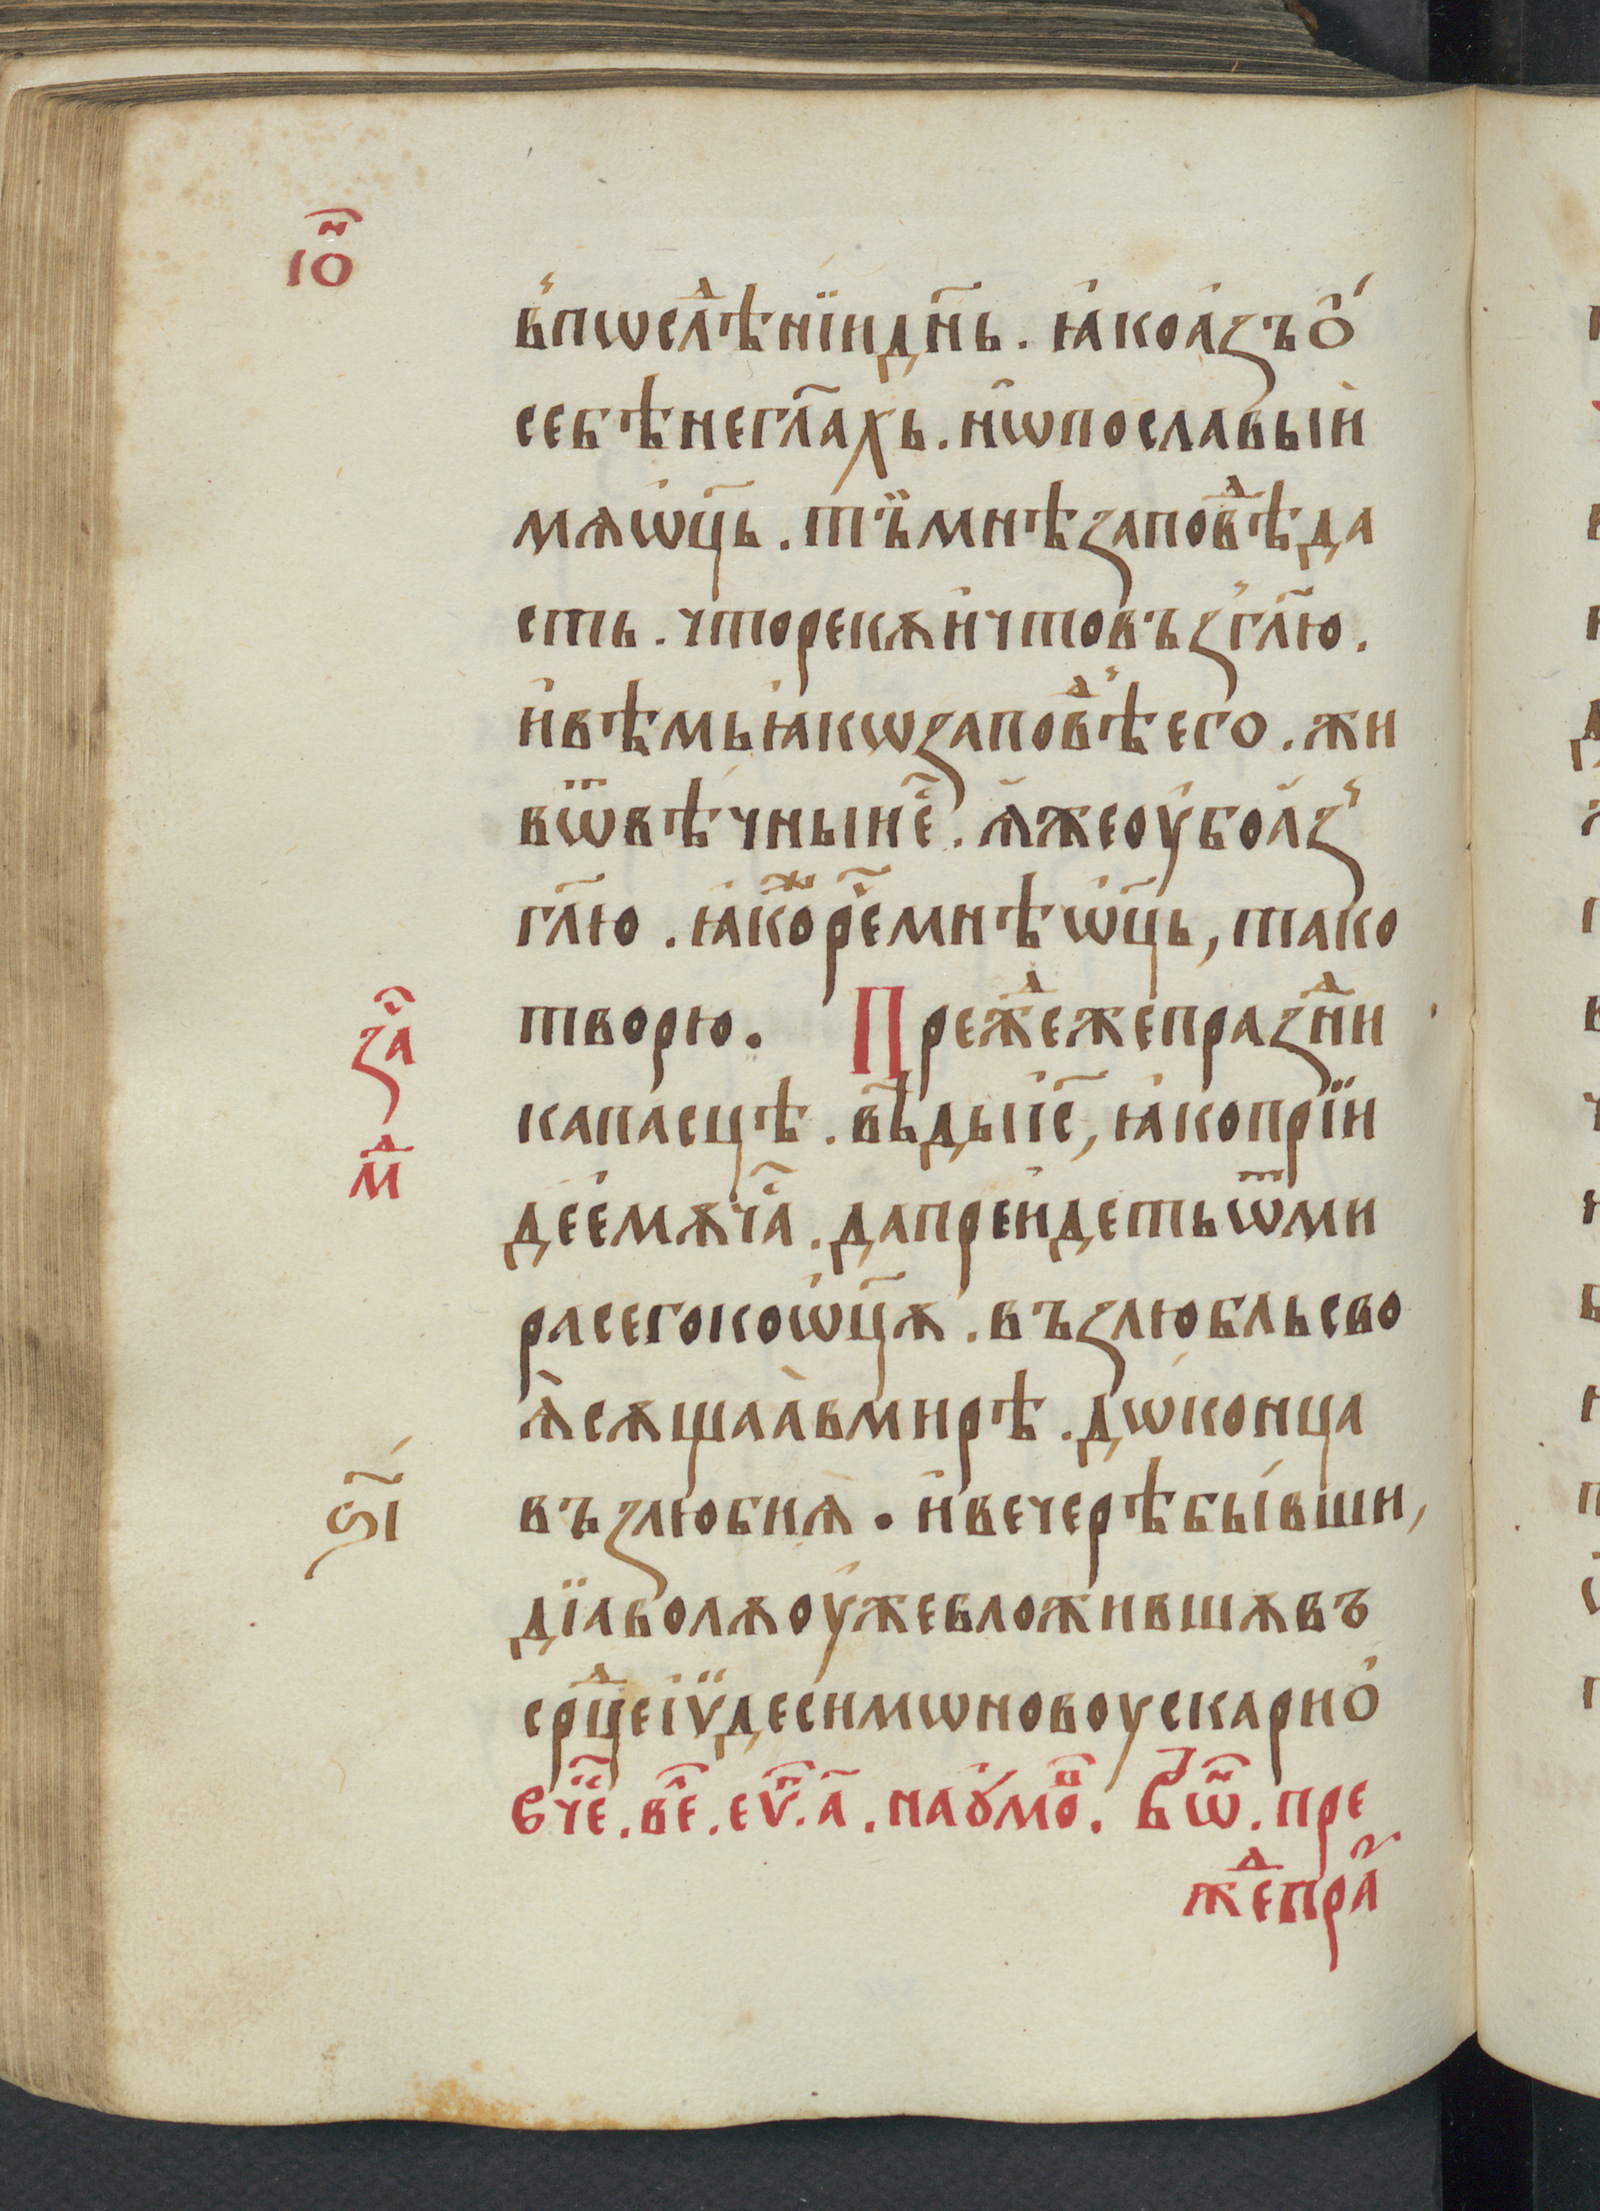 іѡ҃н
в꙽пѡслⷣѣнїидн҃ь . ꙗ҆коа҆зъѻ҆́
себѣнегл҃ахь . н҆ѡпославыи҆
мѧѡ҆ц҃ь . тъ̈мнѣзаповⷣѣда
сть . чторекѫи҆чтовъз꙽гл҃ю .
и҆вѣмьꙗ҆кѡзаповⷣѣ꙽его . жи
вѿвѣ́чныиⷭ҇е . ꙗ҆̀жеоу҆боа҆з꙽
гл҃ю . ꙗ҆коⷤреⷱ҇мнѣѡ҆ц҃ь , тако
творю . Прежⷣежепразⷣни
капасцѣ . вѣ҃дыі҆с҃ , ꙗ҆коприї
дее҆мѫчⷭ҇а . дапреи҆детьѿми
расегокоѡ҆ц҃ѫ . възлюбльсво
ѧ҆̀сѫщаа҆̀вмирѣ . дѡ҆конца
възлюбиѧ҆̀ . и҆вечерѣбы́вши ,
дїаволѫоу҆жевложившѫвъ
срⷣц҃еі҆ѵ̈десимѡновоускарио҆
за҃ч
мⷣ
ѕ҃і
Вⷱ҇е . вⷧ҇е . еѵⷢ҇ . а҃ . наᲂу҆моⷡ҇ . Бѿ . пре
жⷣепраⷥ